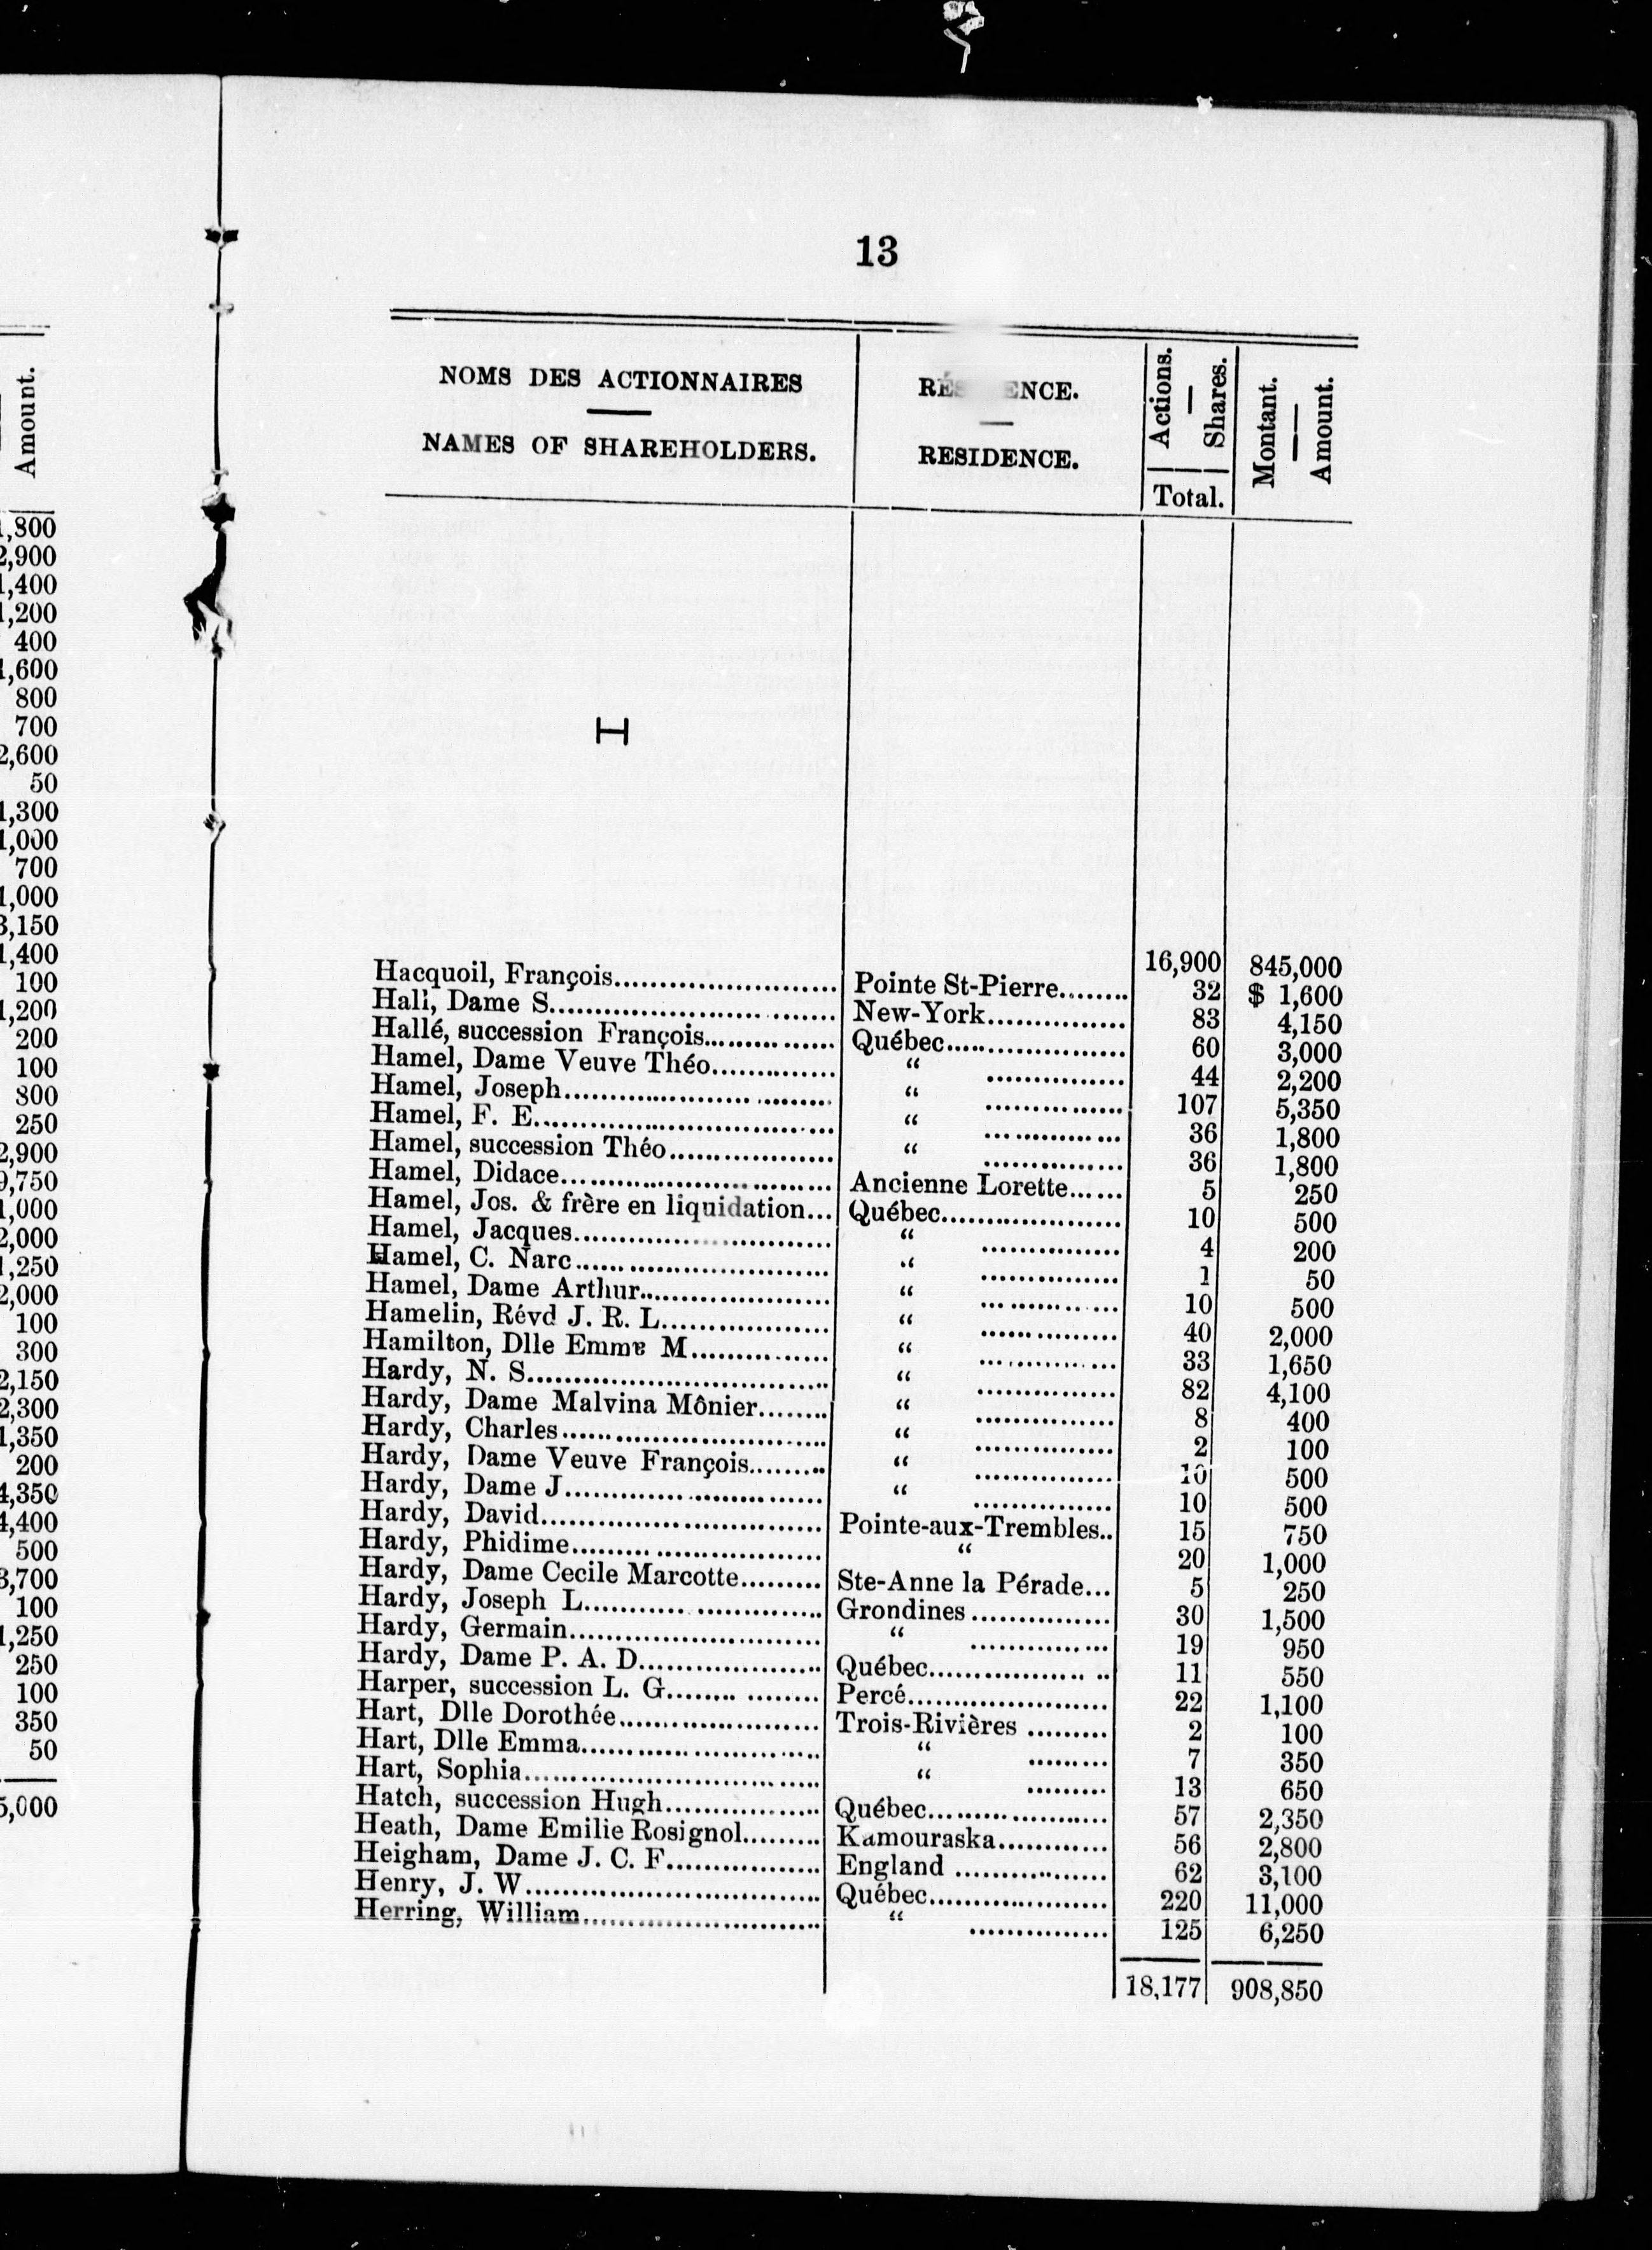 Amount.
1,800
2,900
1,400
1,200
400
1,600
800
700
2,600
50
1,300
1,000
700
1,000
3,150
1,400
100
1,200
200
100
800
250
2,900
9,750
1,000
2,000
1,250
2,000
100
300
2,150
2,300
1,350
200
4,350
4,400
500
3,700
100
1,250
250
100
350
50
5,000
13
NOMS DES ACTIONNAIRES — NAMES OF SHAREHOLDERS.
RÉSIDENCE. — RESIDENCE.
Actions. — Shares.
Total.
Montant. — Amount.
H
16,900 845,000
Hacquoil, François........................ Pointe St-Pierre........ 32 $ 1,600
Hall, Dame S............................ New-York............... 83 4,150
Hallé, succession François............... Québec.................... 60 3,000
Hamel, Dame Veuve Théo............. “ ............... 44 2,200
Hamel, Joseph............................ “ ............... 107 5,350
Hamel, F. E............................... “ ............... 36 1,800
Hamel, succession Théo.................. “ ............... 36 1,800
Hamel, Didace............................. Ancienne Lorette...... 5 250
Hamel, Jos. & frère en liquidation... Québec.................... 10 500
Hamel, Jacques............................ “ ............... 4 200
Hamel, C. Narc............................ “ ............... 1 50
Hamel, Dame Arthur..................... “ ............... 10 500
Hamelin, Révd J. R. L.................. “ ............... 40 2,000
Hamilton, Dlle Emma M............... “ ............... 33 1,650
Hardy, N. S................................ “ ............... 82 4,100
Hardy, Dame Malvina Mônier........ “ ............... 8 400
Hardy, Charles............................ “ ............... 2 100
Hardy, Dame Veuve François......... “ ............... 10 500
Hardy, Dame J............................ “ ............... 10 500
Hardy, David............................... Pointe-aux-Trembles.. 15 750
Hardy, Phidime............................ “ 20 1,000
Hardy, Dame Cecile Marcotte......... Ste-Anne la Pérade... 5 250
Hardy, Joseph L.......................... Grondines ............... 30 1,500
Hardy, Germain............................ “ ............... 19 950
Hardy, Dame P. A. D.................... Québec.................... 11 550
Harper, succession L. G................ Percé...................... 22 1,100
Hart, Dlle Dorothée...................... Trois-Rivières ......... 2 100
Hart, Dlle Emma.......................... “ ......... 7 350
Hart, Sophia................................ “ ......... 13 650
Hatch, succession Hugh................. Québec.................... 57 2,350
Heath, Dame Emilie Rosignol......... Kamouraska............ 56 2,800
Heigham, Dame J. C. F................. England ................. 62 3,100
Henry, J. W................................ Québec.................... 220 11,000
Herring, William.......................... “ ............... 125 6,250
18,177 908,850